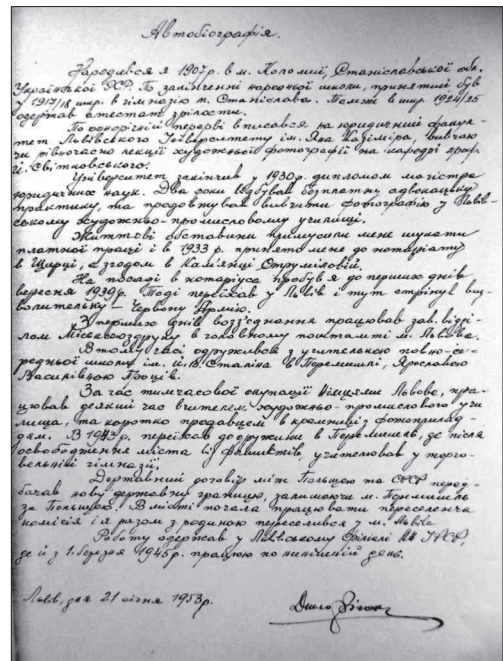 Автобіографія.
Народився я 1907 р. в м. Коломиї, Станіславської обл.
Української РСР. По закінченні народної школи, принятий був
у 1917/18 шкр. в гімназію м. Станіслава. Там же в шкр. 1924/25
одержав атестат зрілости.
По однорічній перерві вписався на юридичний факуль-
тет Львівського Університету ім. Яна Казіміра, вивчаю-
чи рівночасно лекції художньої фотографії на кафедрі проф.
Світковського.
Університет закінчив у 1930 р. дипломом магістра
юридичних наук. Два роки відбував безплатну адвокацьку
практику, та продовжував вивчати фотографію у Львів-
ському художньо-промисловому училищі.
Життєві обставини примусили мене шукати
платної праці і в 1933 р. принято мене до нотаріяту
в Щирці, а згодом в Кам'янці Струміловій.
На посаді в нотаріуса пробув я до перших днів
вересня 1939 р. Тоді переїхав у Львів і тут стрінув виз-
волительку – Червону Армію.
З перших днів возз'єднання працював зав. відді-
лом Міськсоюздруку в головному поштамті м. Львова.
В тому часі одружився з учителькою повно-се-
редньої школи ім. Й. В. Сталіна в Перемишлі, Ярославою
Боців.
За час тимчасової окупації німцями Львова, пра-
цював деякий час вчителем художньо-промислового учи-
лища, та коротко продавцем в крамниці фотоприла-
дям. В 1943 р. переїхав до дружини в Перемишль, де після
освободження міста від фашистів, учителював у торго-
вельній гімназії.
Державний договір між Польщею та СРСР перед-
бачав нову державну границю, залишаючи м. Перемишль
за Польщею. В місті почала працювати переселенча
комісія і я разом з родиною переселився у м. Львів
Роботу одержав у Львівському Філіалі АН УРСР,
де й з 1. березня 1945 р. працюю по нинішній день.
Львів, дня 21 січня 1953 р.